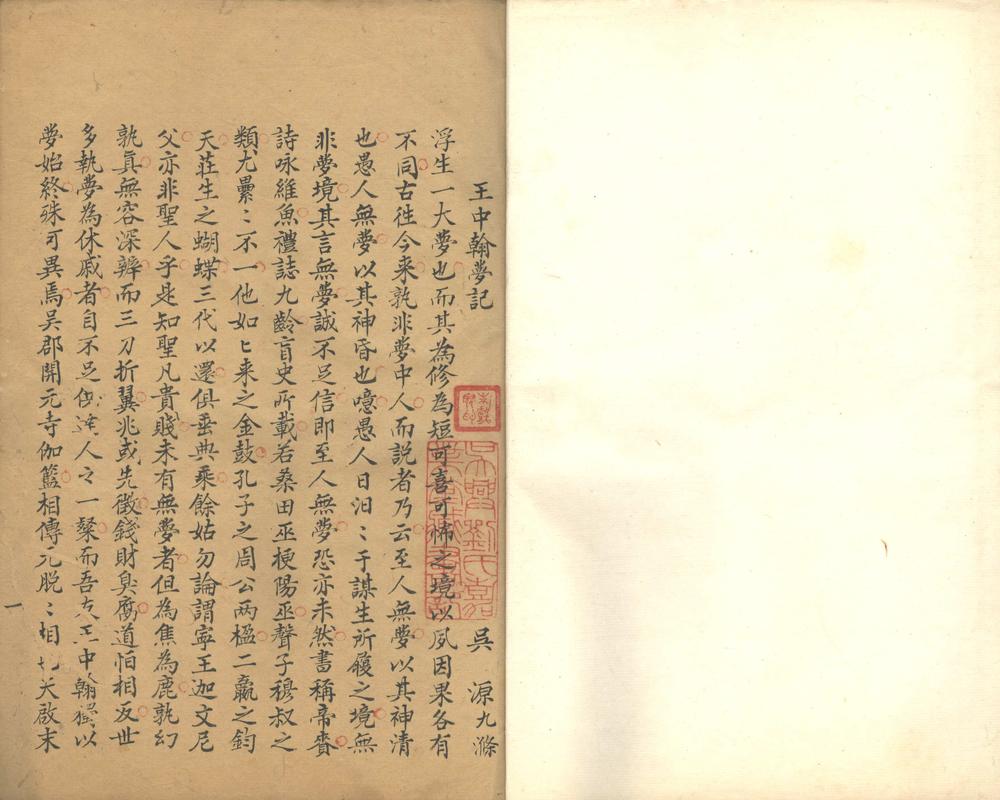 王中翰夢記
吳 源九滌
浮生一大夢也而其為修為短可喜可怖之境以夙因果各有
不同古徃今来孰非夢中人而説者乃云至人無夢以其神清
也愚人無夢以其神昏也噫愚人日汨〻于謀生所履之境無
非夢境其言無夢誠不足信即至人無夢恐亦未然書稱帝賚
詩咏維魚禮誌九齡盲史所載若桑田巫梗陽巫聲子穆叔之
類尤纍〻不一他如匕来之金鼓孔子之周公两楹二嬴之鈞
天莊生之蝴蝶三代以還俱垂典乘餘姑勿論謂寧王迦文尼
父亦非聖人乎是知聖凡貴賤未有無夢者但為焦為鹿孰幻
孰真無容深辨而三刀折翼兆或先徵錢財臭腐道怕相反世
多執夢為休戚者自不足供達人之一粲而吾友王中翰獨以
夢始終殊可異焉吳郡開元寺伽籃相傳元脱〻相 天啟末
一
吳興劉氏嘉
業堂